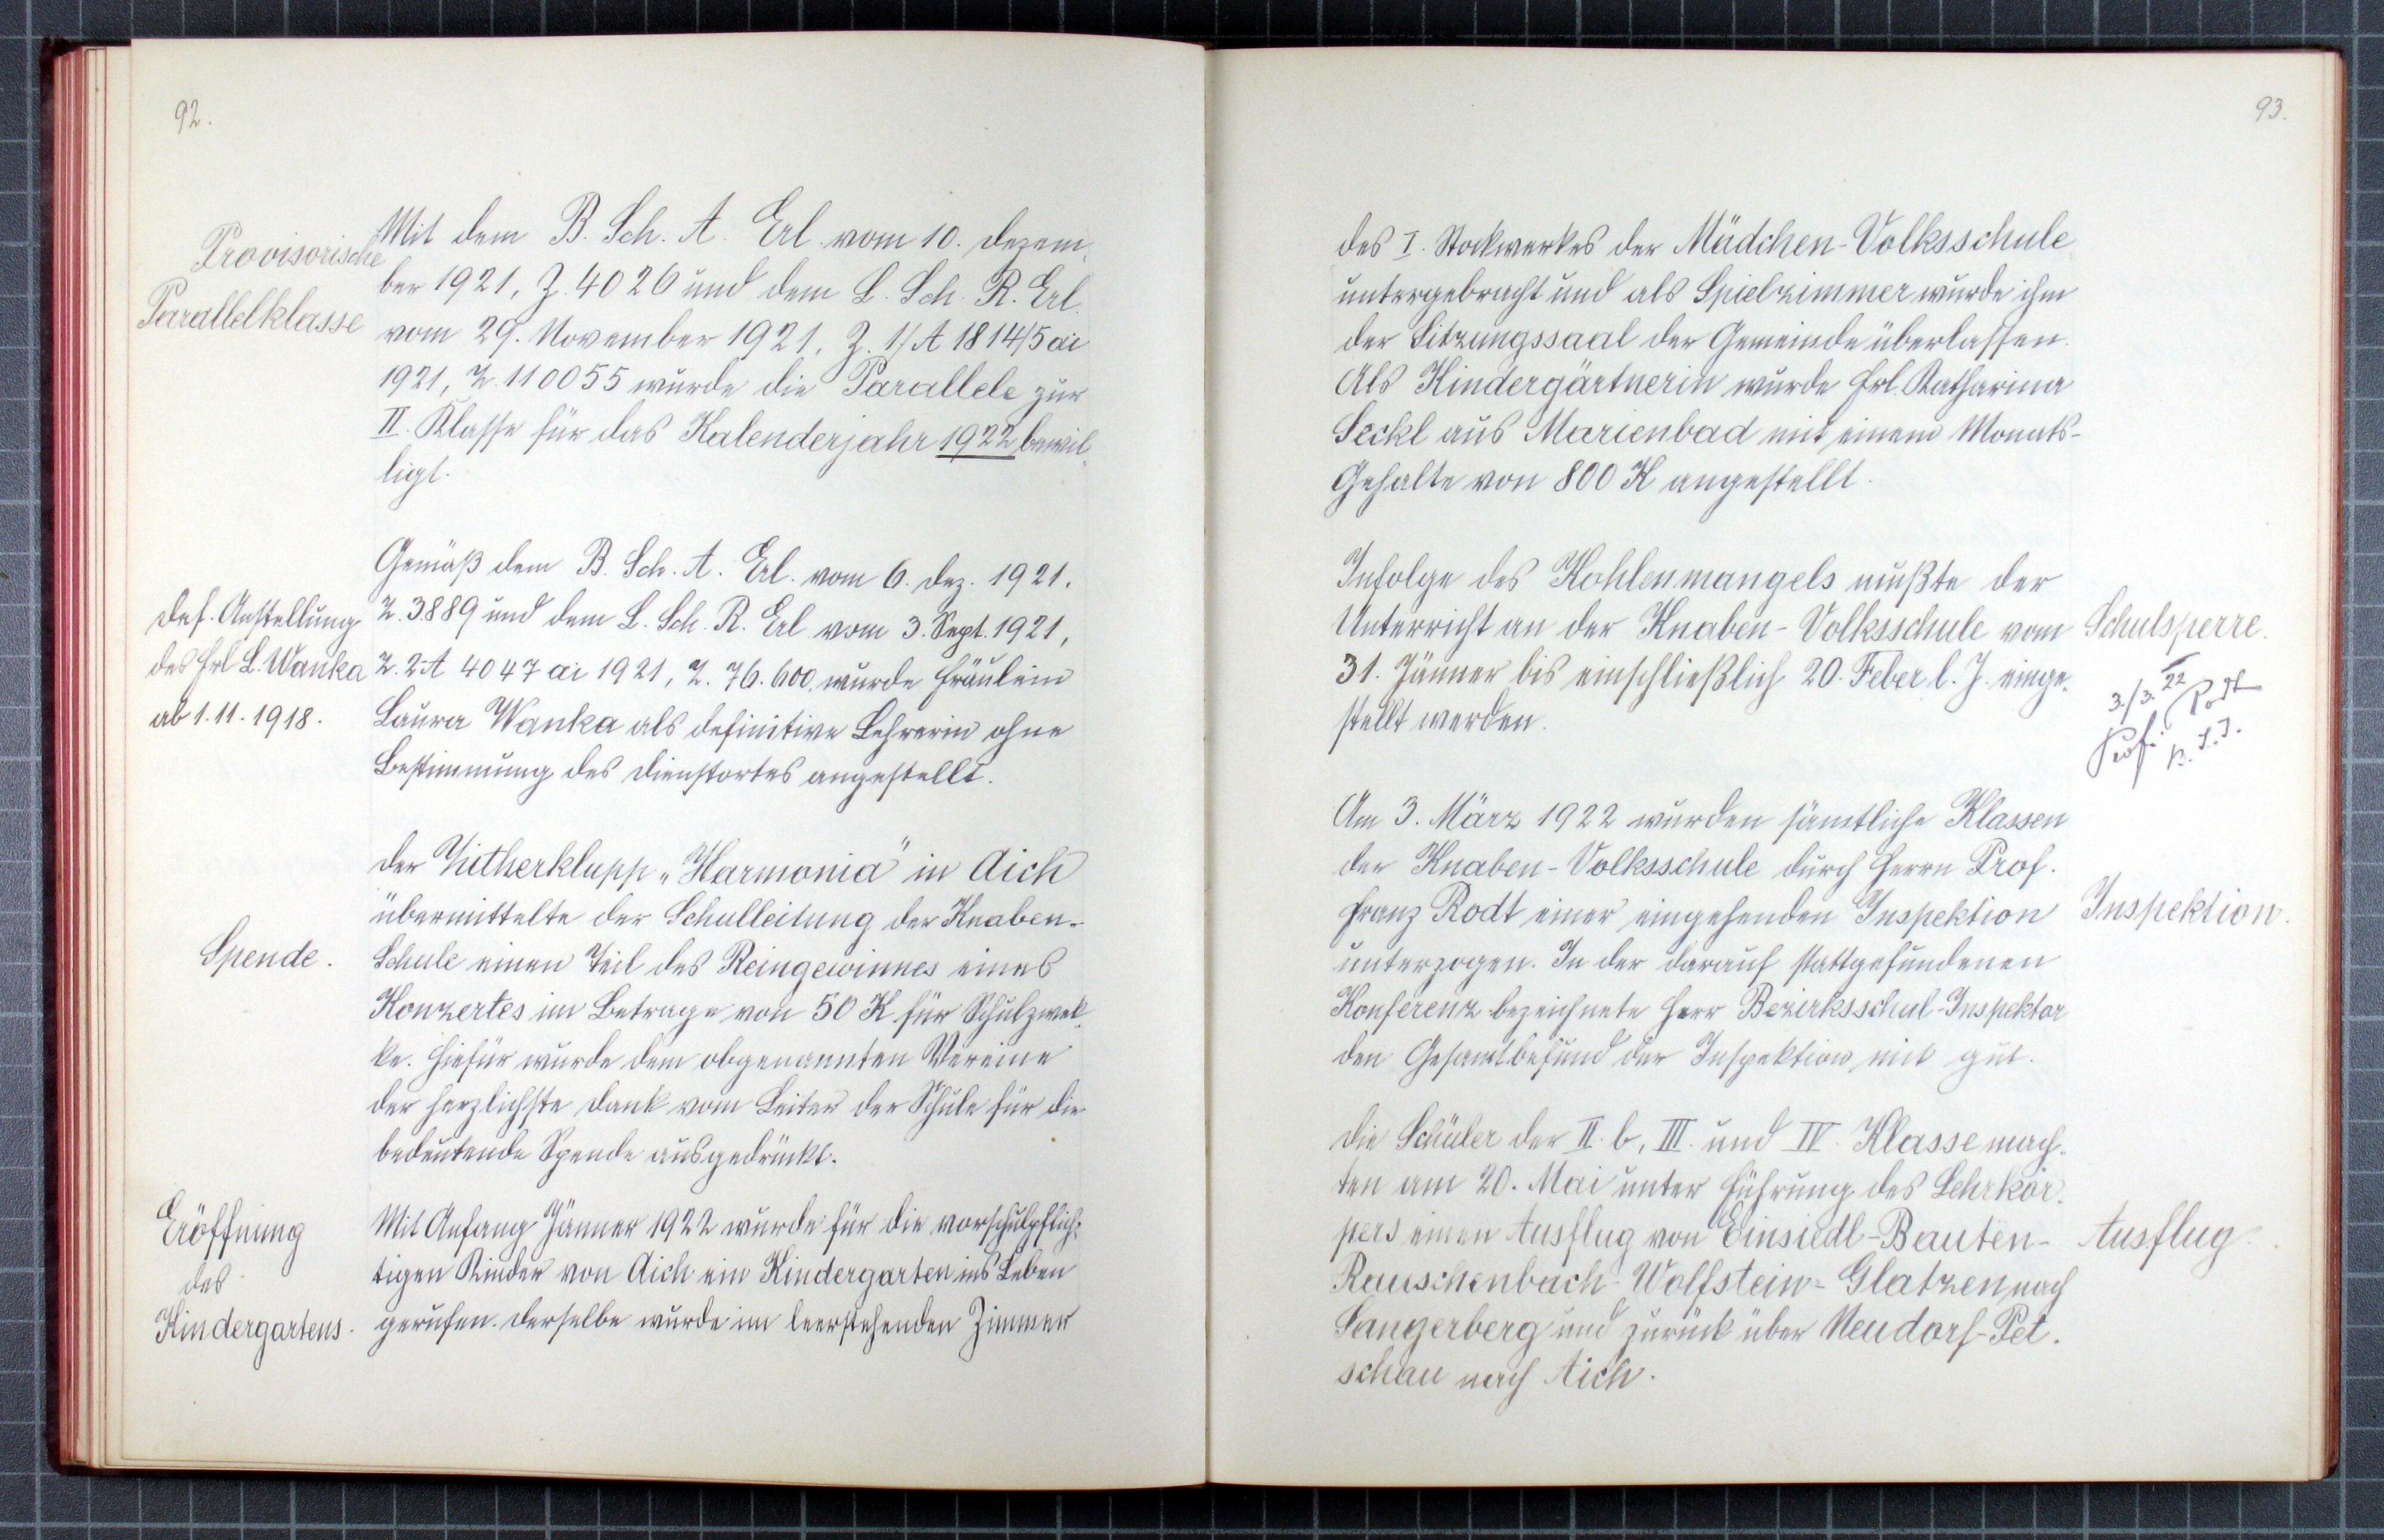 92.
Provisorische
Parallelklasse
Mit dem B. Sch. A. Erl. vom 10. Dezem-
ber 1921, Z. 4026 und dem L. Sch. R. Erl.
vom 29. November 1921, Z. 1/A 1814/5 ai
1921, Z. 110055 wurde die Parallele zur
II. Klasse für das Kalenderjahr 1922 bewil-
ligt.
Def. Anstellung
des Frl L. Wanka
ab 1.11.1918.
Gemäß dem B. Sch. A. Erl. vom 6. Dez. 1921.
Z. 3889 und dem L. Sch. R. Erl. vom 3. Sept. 1921,
Z. 2-A 4047 ai 1921, Z. 76.600, wurde Fräulein
Laura Wanka als definitive Lehrerin ohne
Bestimmung des Dienstortes angestellt.
Spende.
Der Zitherklupp „Harmonia" in Aich
übermittelte der Schulleitung der Knaben-
Schule einen Teil des Reingewinnes eines
Konzertes im Betrage von 50 K für Schulzwek-
ke. Hiefür wurde dem obgenannten Vereine
der herzlichste Dank vom Leiter der Schule für die
bedeutende Spende ausgedrückt.
Eröffnung
des
Kindergartens.
Mit Anfang Jänner 1922 wurde für die vorschulpflich-
tigen Kinder von Aich ein Kindergarten ins Leben
gerufen. Derselbe wurde im leerstehenden Zimmer
93.
des I. Stockwerkes der Mädchen-Volksschule
untergebracht und als Spielzimmer wurde ihm
der Sitzungssaal der Gemeinde überlassen.
Als Kindergärtnerin wurde Frl. Katharina
Seckl aus Marienbad mit einem Monats-
Gehalte von 800 K angestellt.
Infolge des Kohlenmangels mußte der
Unterricht an der Knaben-Volksschule vom
31. Jänner bis einschließlich 20. Feber l. J. einge-
stellt werden.
Schulsperre.
3./3. 22
Prof. Rodt
B. S. I.
Am 3. März 1922 wurden sämtliche Klassen
der Knaben-Volksschule durch Herrn Prof.
Franz Rodt einer eingehenden Inspektion
unterzogen. In der darauf stattgefundenen
Konferenz bezeichnete Herr Bezirksschul-Inspektor
den Gesamtbefund der Inspektion mit gut.
Inspektion.
Die Schüler der II. b, III. und IV. Klasse mach-
ten am 20. Mai unter Führung des Lehrkör-
pers einen Ausflug von Einsiedl-Bauten-
Rauschenbach-Wolfstein-Glatzen nach
Sangerberg und zurück über Neudorf-Pet-
schau nach Aich.
Ausflug.